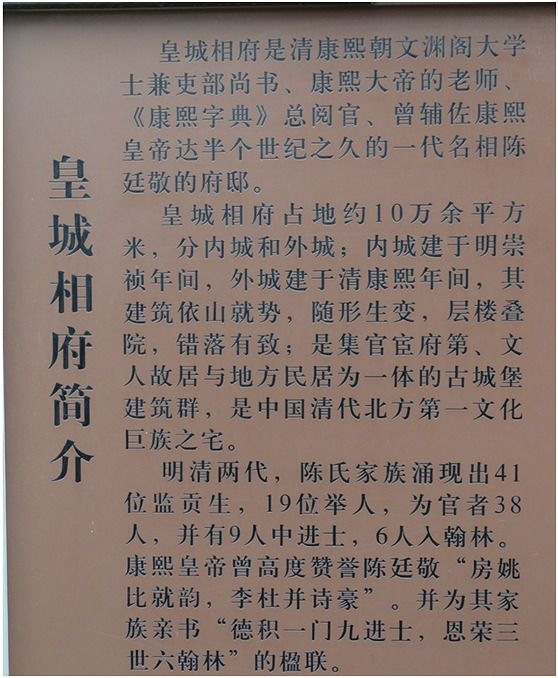 皇城相府简介
皇城相府是清康熙朝文渊阁大学
士兼吏部尚书、康熙大帝的老师、
《康熙字典》总阅官、曾辅佐康熙
皇帝达半个世纪之久的一代名相陈
廷敬的府邸。
皇城相府占地约10万余平方
米，分内城和外城；内城建于明崇
祯年间，外城建于清康熙年间，其
建筑依山就势，随形生变，层楼叠
院，错落有致；是集官宦府第、文
人故居与地方民居为一体的古城堡
建筑群，是中国清代北方第一文化
巨族之宅。
明清两代，陈氏家族涌现出41
位监贡生，19位举人，为官者38
人，并有9人中进士，6人入翰林。
康熙皇帝曾高度赞誉陈廷敬“房姚
比就韵，李杜并诗豪”。并为其家
族亲书“德积一门九进士，恩荣三
世六翰林”的楹联。